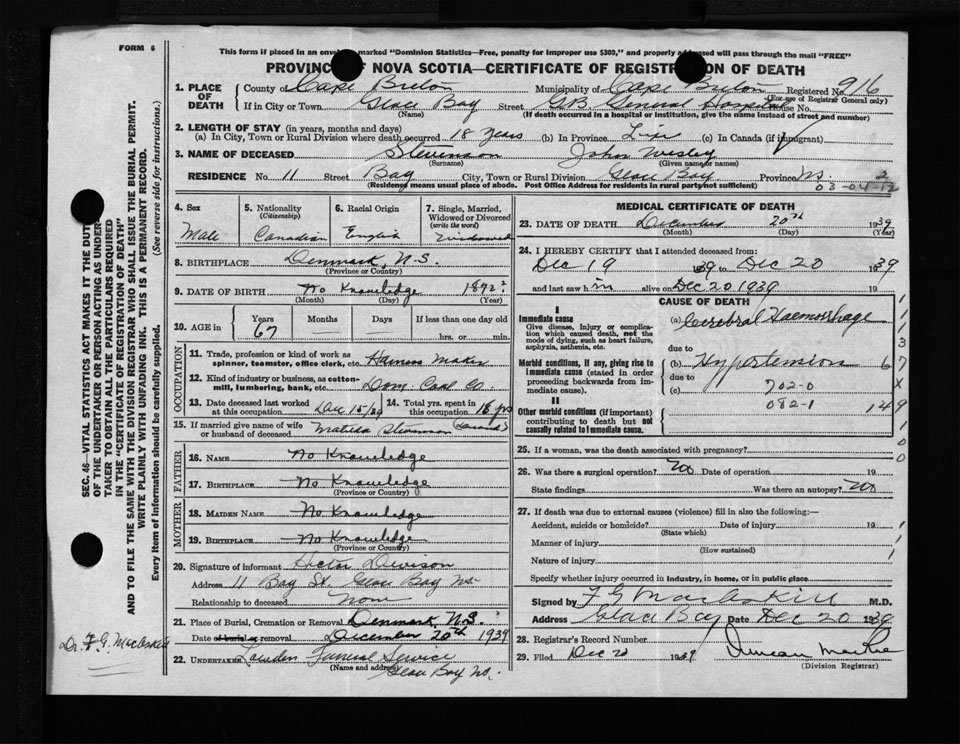 FORM 6
This form if placed in an envelope marked "Dominion Statistics—Free, penalty for improper use $300," and properly addressed will pass through the mail "FREE"
PROVINCE OF NOVA SCOTIA—CERTIFICATE OF REGISTRATION OF DEATH
1. PLACE OF DEATH County of Cape Breton Municipality of Cape Breton Registered No. 916
(For use of Registrar General only)
If in City or Town Glace Bay Street G.B. General Hospital House No.
(Name) (If death occurred in a hospital or institution, give the name instead of street and number)
2. LENGTH OF STAY (in years, months and days)
(a) In City, Town or Rural Division where death occurred 18 years (b) In Province Life (c) In Canada (if immigrant)
3. NAME OF DECEASED Stevenson John Wesley
(Surname) (Given name or names)
RESIDENCE No. 11 Street Bay City, Town or Rural Division Glace Bay Province N.S. 2
(Residence means usual place of abode. Post Office Address for residents in rural parts not sufficient) 03-04-12
4. Sex Male
5. Nationality (Citizenship) Canadian
6. Racial Origin English
7. Single, Married, Widowed or Divorced (write the word) Widowed
8. BIRTHPLACE Denmark, N.S.
(Province or Country)
9. DATE OF BIRTH No Knowledge 1872?
(Month) (Day) (Year)
10. AGE in Years 67 Months Days If less than one day old
hrs. or min.
OCCUPATION
11. Trade, profession or kind of work as spinner, teamster, office clerk, etc. Harness Maker
12. Kind of industry or business, as cotton-mill, lumbering, bank, etc. Dom. Coal Co.
13. Date deceased last worked at this occupation Dec 15/39 14. Total yrs. spent in this occupation 18 yrs
15. If married give name of wife or husband of deceased Matilda Stevenson
FATHER
16. NAME No Knowledge
17. BIRTHPLACE No Knowledge
(Province or Country)
MOTHER
18. MAIDEN NAME No Knowledge
19. BIRTHPLACE No Knowledge
(Province or Country)
20. Signature of informant Hector
Address 11 Bay St. Glace Bay N.S.
Relationship to deceased None
21. Place of Burial, Cremation or Removal Denmark, N.S.
Date of burial or removal December 20th 1939
22. UNDERTAKER Funeral Service
(Name and address) Glace Bay N.S.
MEDICAL CERTIFICATE OF DEATH
23. DATE OF DEATH December 20th 1939
(Month) (Day) (Year)
24. I HEREBY CERTIFY that I attended deceased from:
Dec 19 1939 to Dec 20 1939
and last saw him alive on Dec 20 1939 19
CAUSE OF DEATH
I
Immediate cause (a) Cerebral Haemorrhage
Give disease, injury or complication which caused death, not the mode of dying, such as heart failure, asphyxia, asthenia, etc.
due to
Morbid conditions, if any, giving rise to immediate cause (stated in order proceeding backwards from immediate cause).
(b) Hypertension
due to
(c) 702-0
082-1
II
Other morbid conditions (if important) contributing to death but not causally related to immediate cause.
1
1
1
3
6 7
X
149
1
0
0
25. If a woman, was the death associated with pregnancy?
26. Was there a surgical operation? No Date of operation 19
State findings Was there an autopsy? No
27. If death was due to external causes (violence) fill in also the following:—
Accident, suicide or homicide? Date of injury 19
(State which)
Manner of injury
(How sustained)
Nature of injury
Specify whether injury occurred in industry, in home, or in public place
Signed by F G MacAskill M.D.
Address Glace Bay Date Dec 20 1939
28. Registrar's Record Number
29. Filed Dec 20 1939 Duncan
(Division Registrar)
SEC. 46—VITAL STATISTICS ACT MAKES IT THE DUTY
OF THE UNDERTAKER OR PERSON ACTING AS UNDERTAKER TO OBTAIN ALL THE PARTICULARS REQUIRED
IN THE "CERTIFICATE OF REGISTRATION OF DEATH"
AND TO FILE THE SAME WITH THE DIVISION REGISTRAR WHO SHALL ISSUE THE BURIAL PERMIT.
WRITE PLAINLY WITH UNFADING INK. THIS IS A PERMANENT RECORD.
Every item of information should be carefully supplied. (See reverse side for instructions.)
Dr. F. G. MacAskill